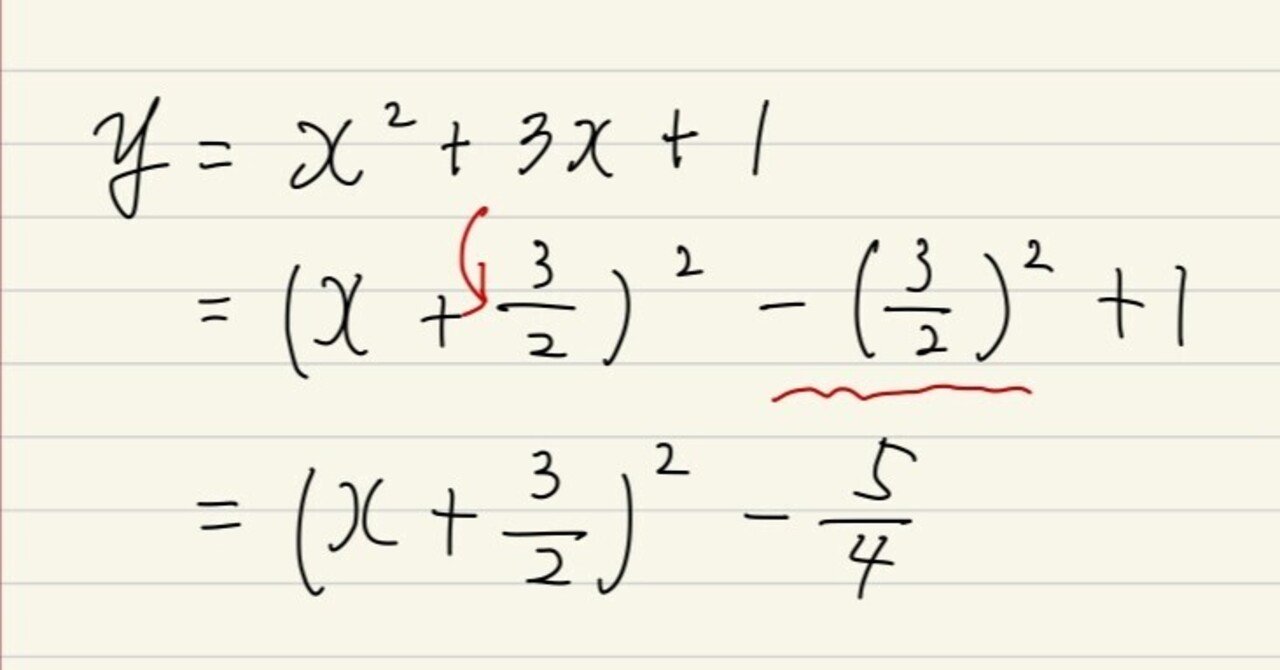 y = x² + 3x + 1
= (x + 3/2)² - (3/2)² + 1
= (x + 3/2)² - 5/4